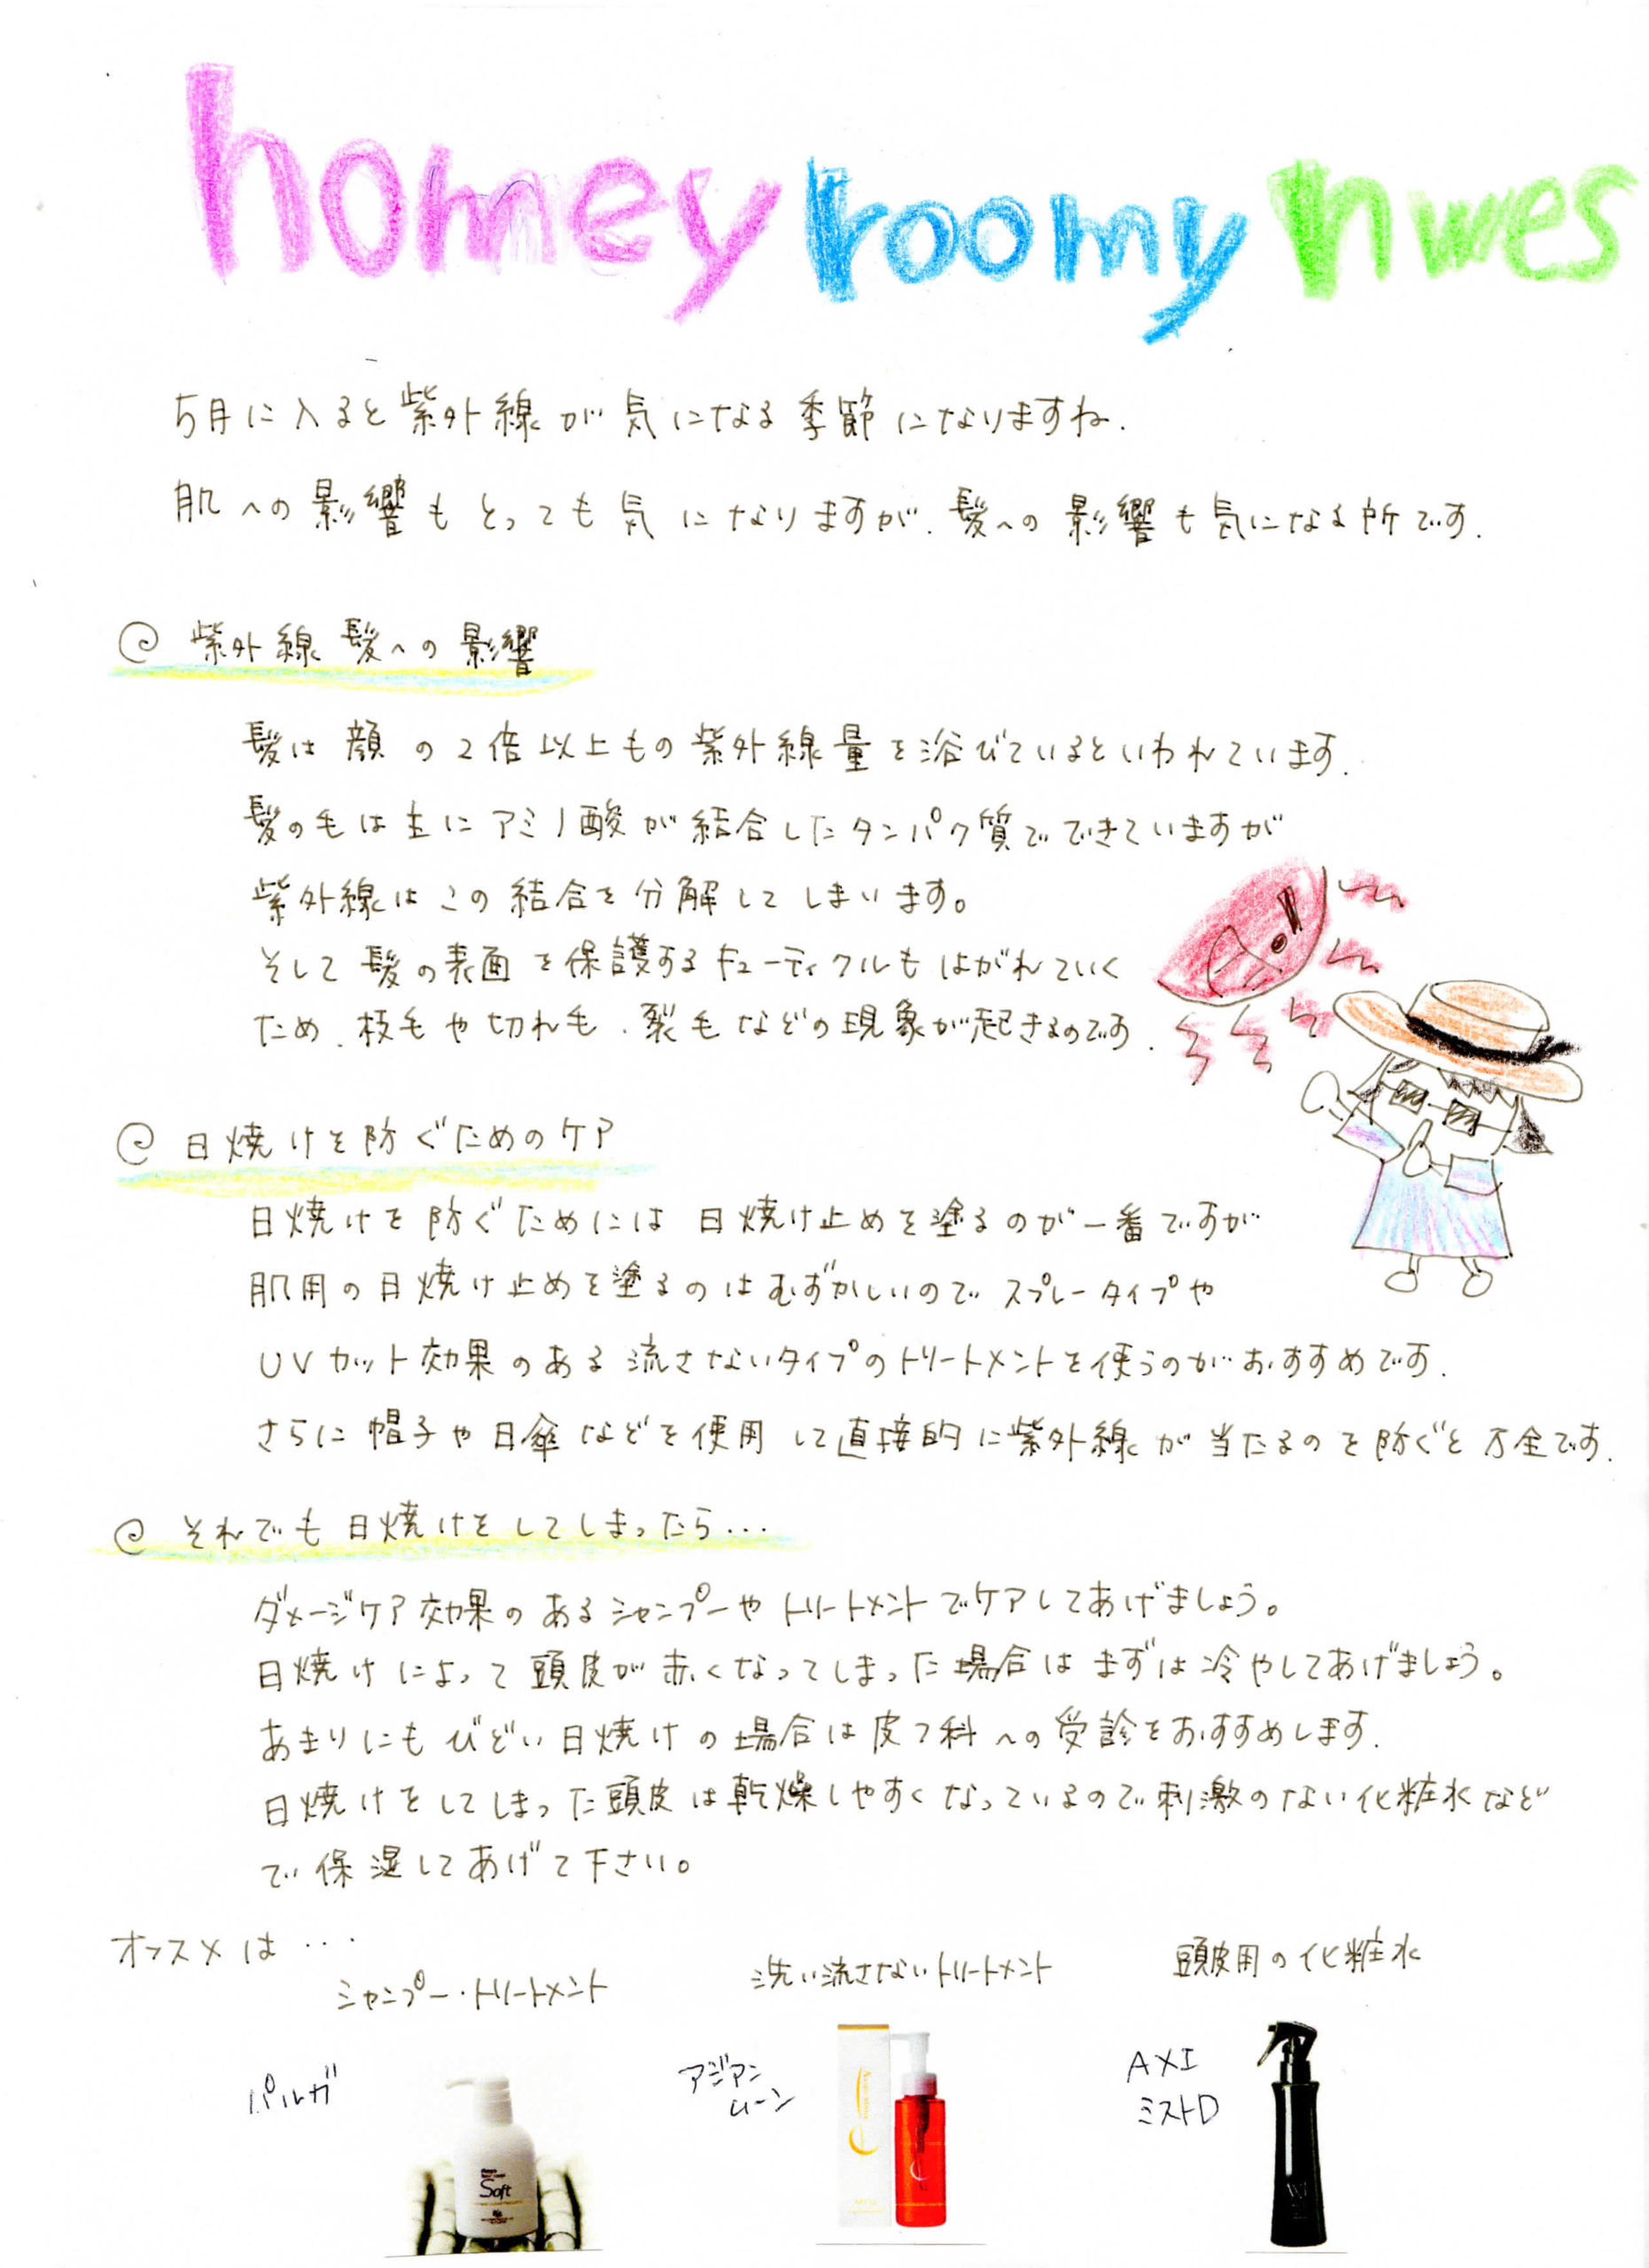 homey roomy nwes
5月に入ると紫外線が気になる季節になりますね.
肌への影響もとっても気になりますが.髪への影響も気になる所です.
@ 紫外線 髪への影響
髪は顔の2倍以上もの紫外線量を浴びているといわれています.
髪の毛は主にアミノ酸が結合したタンパク質でできていますが
紫外線はこの結合を分解してしまいます。
そして髪の表面を保護するキューティクルもはがれていく
ため.枝毛や切れ毛.裂毛などの現象が起きるのです.
@ 日焼けを防ぐためのケア
日焼けを防ぐためには日焼け止めを塗るのが一番ですが
肌用の日焼け止めを塗るのはむずかしいのでスプレータイプや
UVカット効果のある流さないタイプのトリートメントを使うのがおすすめです.
さらに帽子や日傘などを使用して直接的に紫外線が当たるのを防ぐと万全です.
@ それでも日焼けをしてしまったら...
ダメージケア効果のあるシャンプーやトリートメントでケアしてあげましょう。
日焼けによって頭皮が赤くなってしまった場合はまずは冷やしてあげましょう。
あまりにもひどい日焼けの場合は皮フ科への受診をおすすめします.
日焼けをしてしまった頭皮は乾燥しやすくなっているので刺激のない化粧水など
で保湿してあげて下さい。
オススメは...
シャンプー・トリートメント
洗い流さないトリートメント
頭皮用の化粧水
パルガ
アジアン
ムーン
AXI
ミストD
Soft